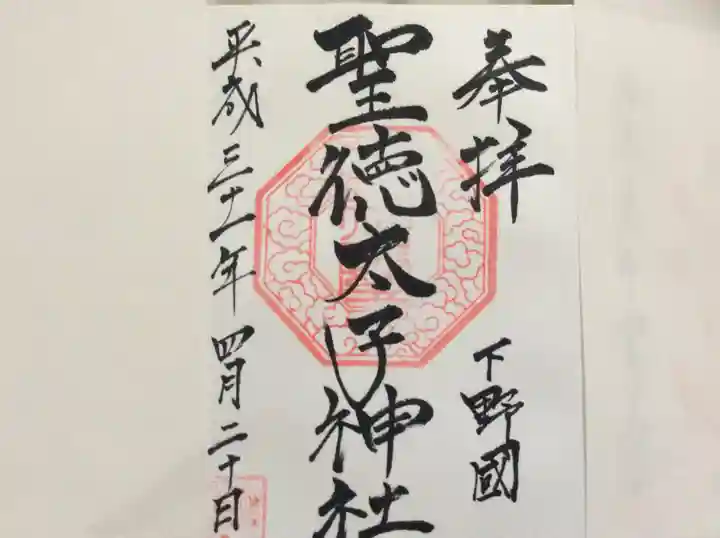 奉拝
下野國
聖徳太子神社
平成三十一年四月二十日